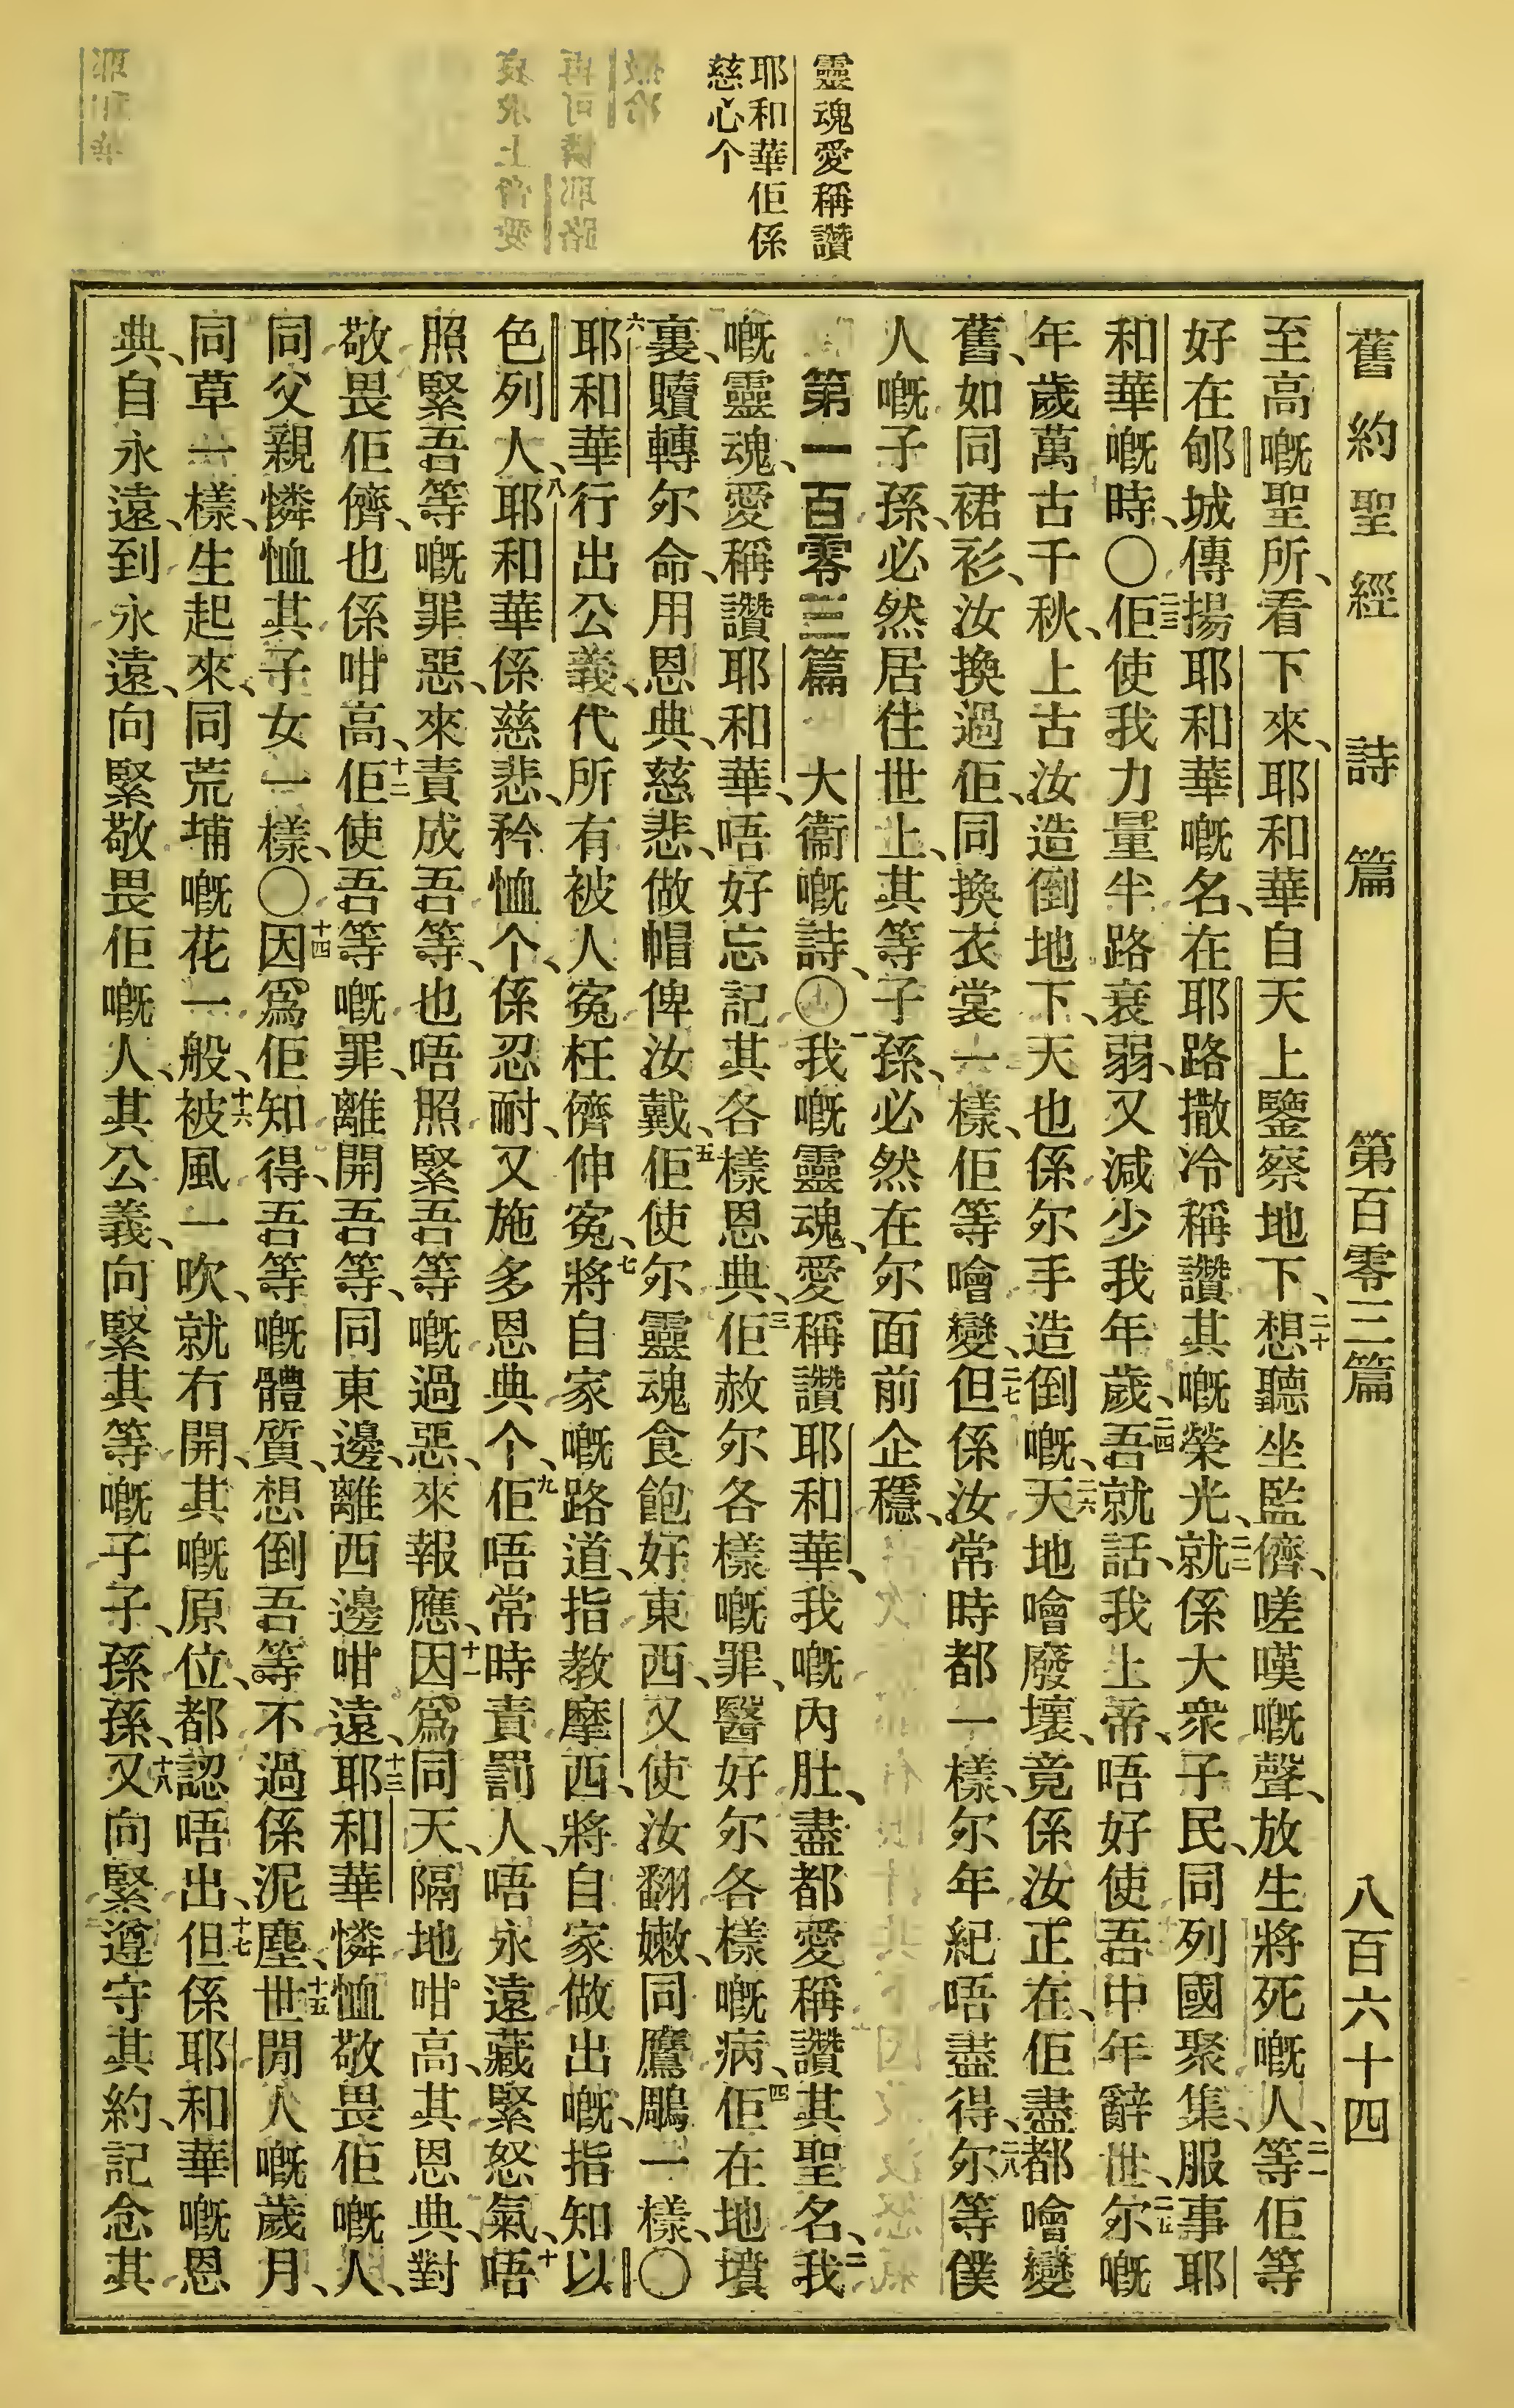 舊約聖經 詩篇 第百零三篇 八百六十四
靈魂愛稱讚
耶和華佢係
慈心个
至高嘅聖所、看下來、耶和華自天上鑒察地下、二十想聽坐監儕、嗟嘆嘅聲、放生將死嘅人、二一等佢等
好在郇城傳揚耶和華嘅名、在耶路撒冷稱讚其嘅榮光、二二就係大衆子民、同列國聚集、服事耶
和華嘅時、〇二三佢使我力量半路衰弱、又減少我年歲、二四吾就話、我上帝、唔好使吾中年辭世、二五尔嘅
年歲萬古千秋、上古汝造倒地下、天也係尔手造倒嘅、二六天地噲廢壞、竟係汝正在、佢盡都噲變
舊、如同裙衫、汝換過佢、同換衣裳一樣、佢等噲變、二七但係汝常時都一樣、尔年紀唔盡得、二八尔等僕
人嘅子孫、必然居住世上、其等子孫、必然在尔面前企穩、
第一百零三篇 大衞嘅詩、〇一我嘅靈魂、愛稱讚耶和華、我嘅內肚、盡都愛稱讚其聖名、二我
嘅靈魂、愛稱讚耶和華、唔好忘記其各樣恩典、三佢赦尔各樣嘅罪、醫好尔各樣嘅病、四佢在地墳
裏、贖轉尔命、用恩典、慈悲、做帽俾汝戴、五佢使尔靈魂食飽好東西、又使汝翻嫩、同鷹鵰一樣、〇
六耶和華行出公義、代所有被人寃枉儕伸寃、七將自家嘅路道、指教摩西、將自家做出嘅、指知以
色列人、八耶和華係慈悲、矜恤个、係忍耐、又施多恩典个、九佢唔常時責罰人、唔永遠藏緊怒氣、十唔
照緊吾等嘅罪惡、來責成吾等、也唔照緊吾等嘅過惡、來報應、十一因爲同天、隔地咁高、其恩典、對
敬畏佢儕、也係咁高、十二佢使吾等嘅罪、離開吾等、同東邊、離西邊咁遠、十三耶和華憐恤敬畏佢嘅人、
同父親憐恤其子女一樣、〇十四因爲佢知得、吾等嘅體質、想倒吾等不過係泥塵、十五世間人嘅歲月、
同草一樣、生起來、同荒埔嘅花一般、十六被風一吹、就冇開、其嘅原位、都認唔出、十七但係耶和華嘅恩
典、自永遠、到永遠、向緊敬畏佢嘅人、其公義、向緊其等嘅子子、孫孫、十八又向緊遵守其約、記念其